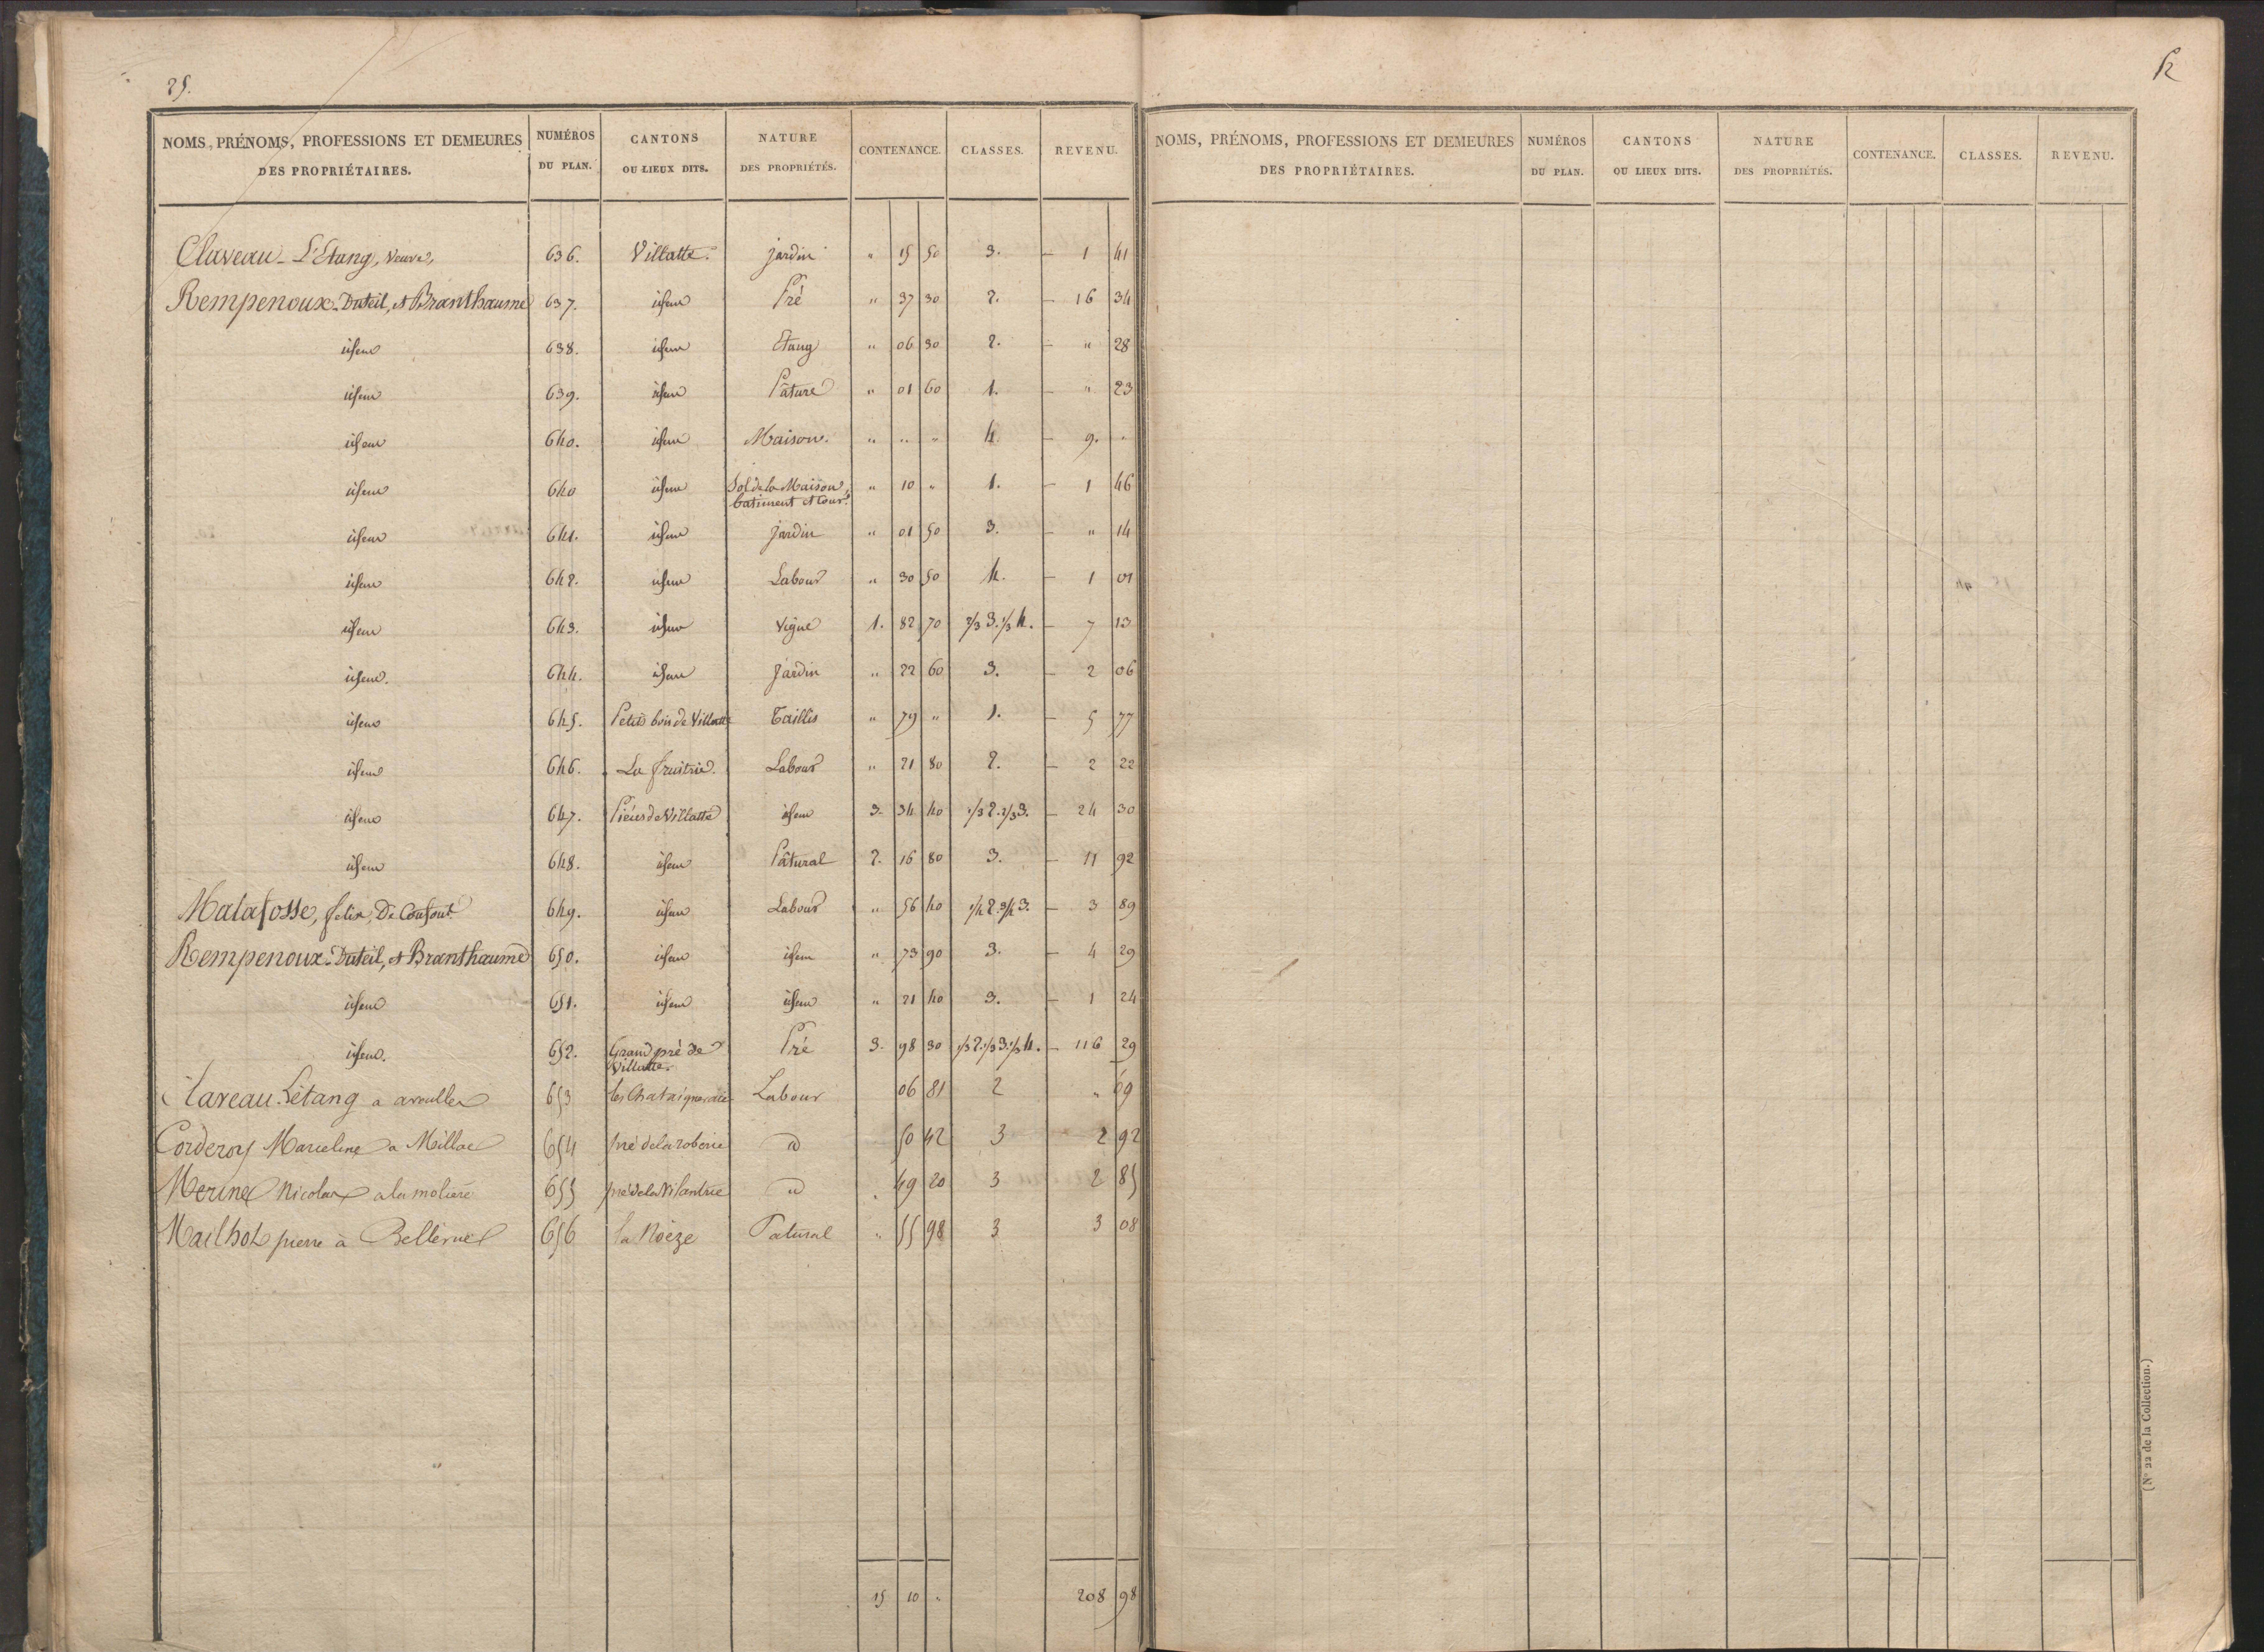 25.
NOMS, PRÉNOMS, PROFESSIONS ET DEMEURES DES PROPRIÉTAIRES. NUMÉROS DU PLAN. CANTONS OU LIEUX DITS. NATURE DES PROPRIÉTÉS. CONTENANCE. CLASSES. REVENU.
Claveau-L'Etang, Veuve, 636. Villatte. jardin " 15 50 3. — 1 41
Rempenoux-Duteil, et Branthaume 637. idem Pré " 37 30 2. — 16 34
idem 638. idem Etang " 06 30 2. — " 28
idem 639. idem Pâture " 01 60 1. — " 23
idem 640. idem Maison. " " " 4. — 9. "
idem 640 idem Sol de la Maison, " 10 " 1. — 1 46
batiment et Cour.
idem 641. idem jardin " 01 50 3. — " 14
idem 642. idem Labour " 30 50 4. — 1 01
idem 643. idem Vigne 1. 82 70 2/3 3. 1/3 4. — 7 13
idem. 644. idem Jardin " 22 60 3. — 2 06
idem 645. Petit bois de Villatte Taillis " 79 " 1. — 5 77
idem 646. La fruitrie. Labour " 21 80 2. — 2 22
idem 647. Pièces de Villatte idem 3. 34 40 1/3 2. 2/3 3. — 24 30
idem 648. idem Pâtural 2. 16 80 3. — 11 92
Malafosse, felix, De 649. idem Labour " 56 40 1/4 2. 3/4 3. — 3 89
Rempenoux-Duteil, et Branthaume 650. idem idem " 73 90 3. — 4 29
idem 651. idem idem " 21 40 3. — 1 24
idem. 652. Grand pré de Pré 3. 98 30 1/3 2. 1/3 3. 1/3 4. — 116 29
Villatte.
Claveau Létang a 653 les Chataigneraie Labour 06 81 2 " 69
Corderoy Marceline a Millac 654 pré de la roberie d 50 42 3 2 92
Merine Nicolas a la moliere 655 pré de la d " 49 20 3 2 85
Mailhot pierre à 656 la Noëze Patural " 55 98 3 3 08
15 10 " 208 98
52
NOMS, PRÉNOMS, PROFESSIONS ET DEMEURES DES PROPRIÉTAIRES. NUMÉROS DU PLAN. CANTONS OU LIEUX DITS. NATURE DES PROPRIÉTÉS. CONTENANCE. CLASSES. REVENU.
(N° 22 de la Collection.)